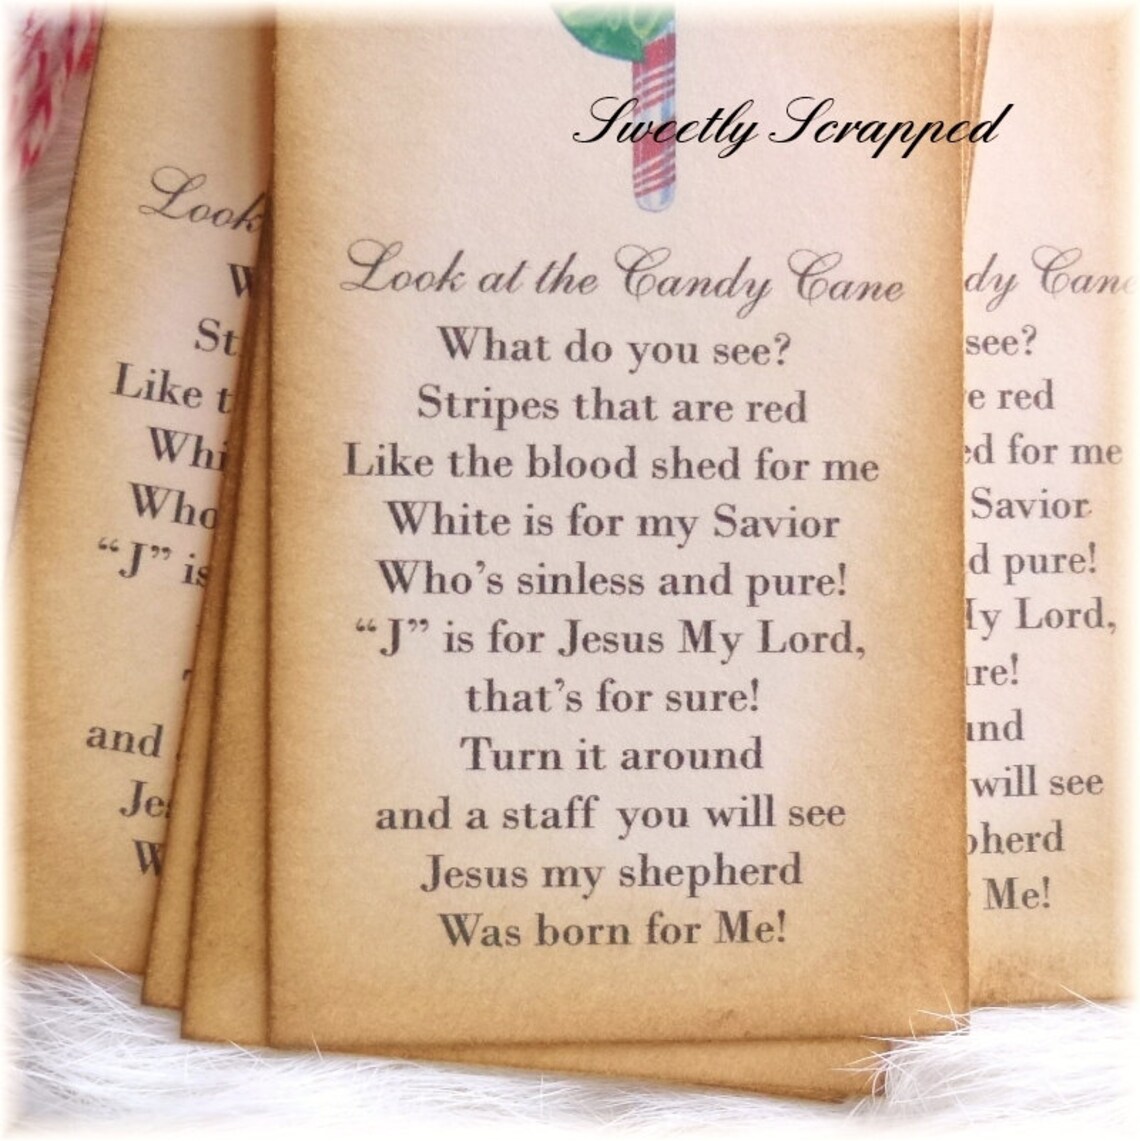 Sweetly Scrapped
Look at the Candy Cane
What do you see?
Stripes that are red
Like the blood shed for me
White is for my Savior
Who's sinless and pure!
“J” is for Jesus My Lord,
that's for sure!
Turn it around
and a staff you will see
Jesus my shepherd
Was born for Me!
Look
W
St
Like t
Whi
Who
“J” is
and
Jes
W
dy Cane
see?
e red
ed for me
Savior
d pure!
My Lord,
ure!
und
will see
pherd
Me!